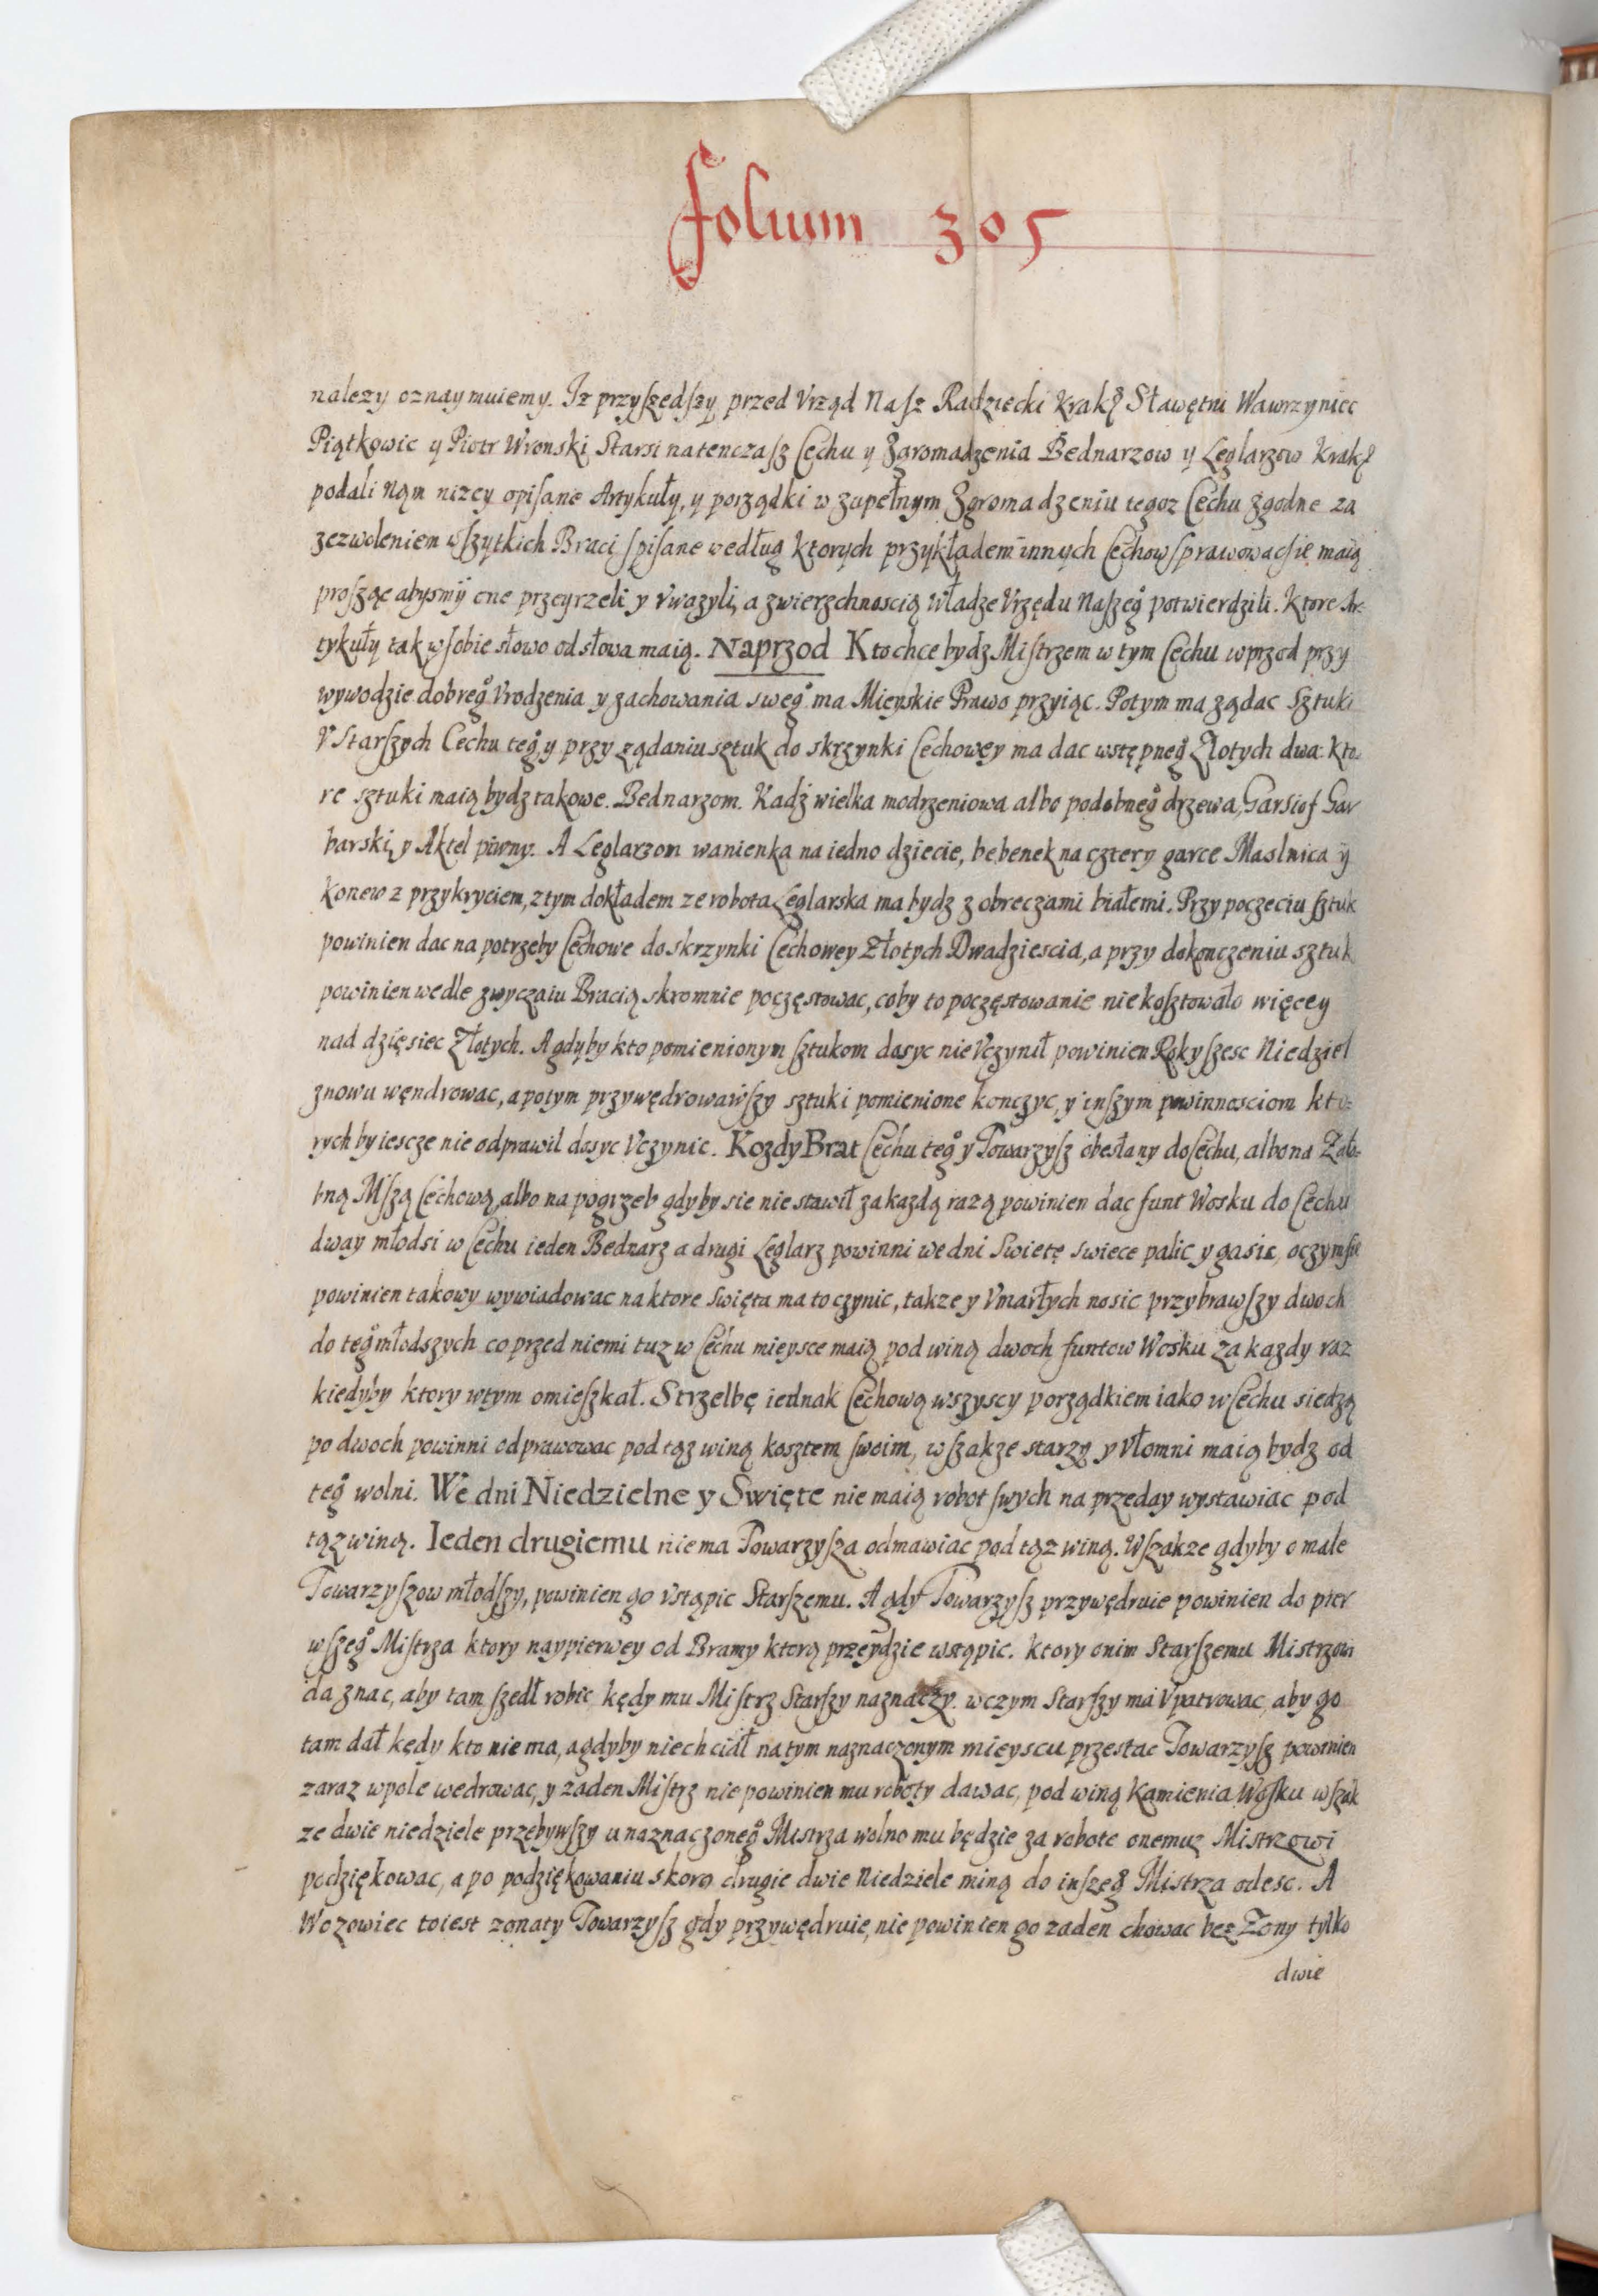 folium 305
nalezy oznaymuiemy. Iz przyszedszy przed Vrząd Nasz Radziecki Krak Sławętni Wawrzyniec
Piątkowic y Piotr Wronski Starsi natenczasz Cechu y Zgromadzenia Bednarzow y Leglarzow Krak
podali Nąm nizey opisane Artykuły, y porządki w zupełnym Zgromadzeniu tegoz Cechu zgodne za
zezwoleniem wszytkich Braci spisane według ktorych przykłądem innych Cechow sprawowac się maią
prosząc abysmÿ one przeyrzeli y vwazyli, a zwierzchnoscią władze Vrzędu Naszeg° potwierdzili. Ktore Ar-
tykuły tak w sobie słowo od słowa maią. Naprzod Kto chce bydz Mistrzem w tym Cechu wprzod przy
wywodzie dobreg° Vrodzenia y zachowania sweg° ma Mieyskie Prawo przyiąc. Potym ma ządac Sztuki
V Starszych Cechu teg°, y przy ządaniu sztuk do skrzynki Cechowey ma dac wstępneg° Złotych dwa: kto-
re sztuki maią bydz takowe. Bednarzom. Kadz wielka modrzeniowa albo podobneg° drzewa, Garsiof Gar
barski, y Aktel piwny. A Leglarzom wanienka na iedno dziecie, bebenek na cztery garce Maslnica ÿ
konew z przykryciem, z tym dokładem ze robota Leglarska ma bydz z obreczami białemi. Przy poczeciu sztuk
powinien dac na potrzeby Cechowe do skrzynki Cechowey Złotych Dwadziescia, a przy dokonczeniu sztuk
powinien wedle zwyczaiu Bracią skromnie poczęstowac, coby to poczęstowanie nie kosztowało więcey
nad dzięsiec Złotych. A gdyby kto pomienionym sztukom dosyc nie Vczynił powinien Rok y szesc Niedziel
znowu węndrowac, a potym przywędrowawszy sztuki pomienione konczyc, y inszym powinnosciom kto-
rych by iescze nie odprawil dosyc Vczynic. Kozdy Brat Cechu teg° y Towarzysz obesłany do Cechu, albo na Zało-
bną Mszą Cechową, albo na pogrzeb gdyby sie nie stawił za kazdą razą powinien dac funt Wosku do Cechu
dway młodsi w Cechu ieden Bednarz a drugi Leglarz powinni we dni Swietę swiece palic y gasic, o czym sie
powinien takowy wywiadowac na ktore swięta ma to czynic, takze y Vmarłych nosic przybrawszy dwoch
do teg° młodszych co przed niemi tuz w Cechu mieysce maią pod winą dwoch funtow Wosku za kazdy raz
kiedyby ktory w tym omieszkał. Strzelbę iednak Cechową wszyscy porządkiem iako w Cechu siedzą
po dwoch powinni odprawowac pod tąz winą kosztem swoim, wszakze starzy y Vłomni maią bydz od
teg° wolni. We dni Niedzielne y Swięte nie maią robot swych na przeday wystawiac pod
tąz winą. Ieden drugiemu nie ma Towarzysza odmawiac pod tąz winą. Wszakze gdyby o male
Towarzyszow młodszy, powinien go vstąpic Starszemu. A gdy Towarzysz przywędruie powinien do pier
wszeg° Mistrza ktory naypierwey od Bramy ktorą przeydzie wstąpic. ktory o nim Starszemu Mistrzowi
da znac, aby tam szedł robic kędy mu Mistrz Starszy naznaczy. w czym Starszy ma Vpatrowac, aby go
tam dał kędy kto nie ma, a gdyby nie chciał na tym naznaczonym mieyscu przestac Towarzysz powinien
zaraz w pole wedrowac, y zaden Mistrz nie powinien mu roboty dawac, pod winą Kamienia Wosku wszak
ze dwie niedziele przebywszy u naznaczoneg° Mistrza wolno mu będzie za robote onemuz Mistrzowi
podziękowac, a po podziękowaniu skoro drugie dwie Niedziele miną do inszeg° Mistrza odesc. A
Wozowiec to iest zonaty Towarzysz gdy przywędruie, nie powinien go zaden chowac bez Zony tylko
dwie